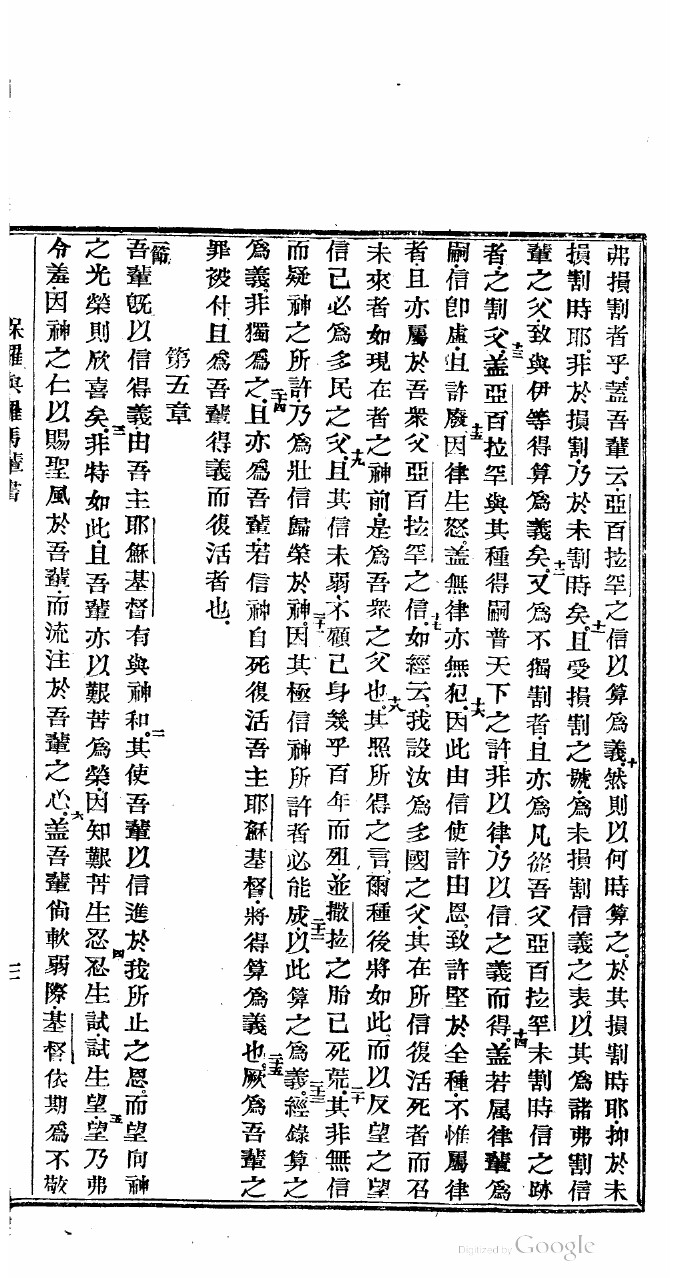 弗損割者乎蓋吾輩云亞百拉罕之信以算爲義十然則以何時算之於其損割時耶抑於未
損割時耶非於損割乃於未割時矣十一且受損割之號爲未損割信義之表以其爲諸弗割信
輩之父致與伊等得算爲義矣十二又爲不獨割者且亦爲凡從吾父亞百拉罕未割時信之跡
者之割父十三蓋亞百拉罕與其種得嗣普天下之許非以律乃以信之義而得十四蓋若属律輩爲
嗣信卽虛且許廢十五因律生怒蓋無律亦無犯十六因此由信使許由恩致許堅於全種不惟屬律
者且亦屬於吾衆父亞百拉罕之信十七如經云我設汝爲多國之父其在所信復活死者而召
未來者如現在者之神前是爲吾衆之父也十八其照所得之言爾種後將如此而以反望之望
信已必爲多民之父十九且其信未弱不顧已身幾乎百年而殂並撒拉之胎已死荒二十其非無信
而疑神之所許乃爲壯信歸榮於神二十一因其極信神所許者必能成二十二以此算之爲義二十三經錄算之
爲義非獨爲之二十四且亦爲吾輩若信神自死復活吾主耶穌基督將得算爲義也二十五厥爲吾輩之
罪被付且爲吾輩得義而復活者也
第五章
一節吾輩旣以信得義由吾主耶穌基督有與神和二其使吾輩以信進於我所止之恩而望向神
之光榮則欣喜矣三非特如此且吾輩亦以艱苦爲榮因知艱苦生忍四忍生試試生望五望乃弗
令羞因神之仁以賜聖風於吾輩而流注於吾輩之心六蓋吾輩尙軟弱際基督依期爲不敬
保羅與羅馬輩書